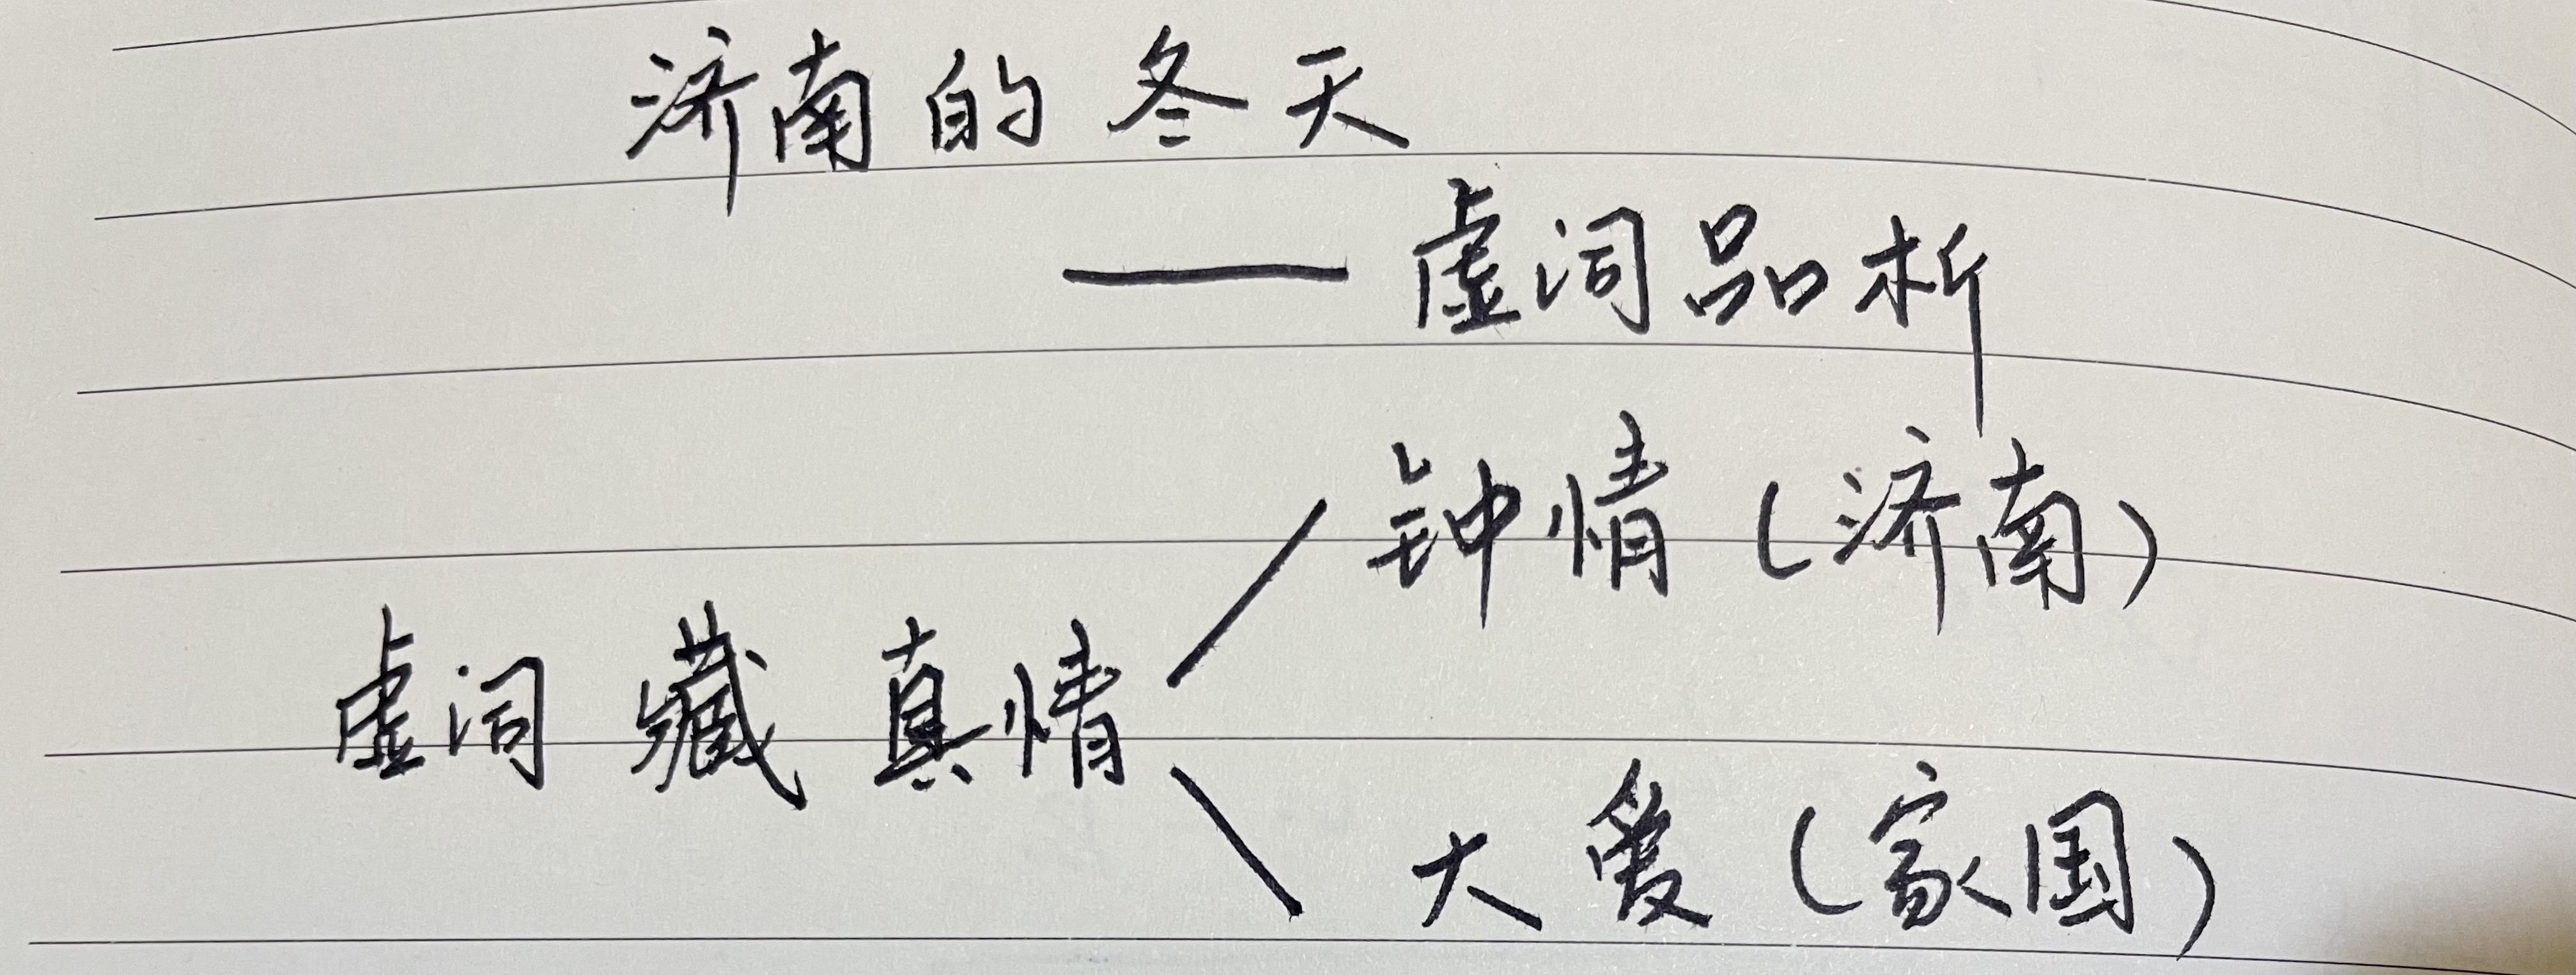 济南的冬天
——虚词品析
钟情(济南)
虚词藏真情
大爱(家国)